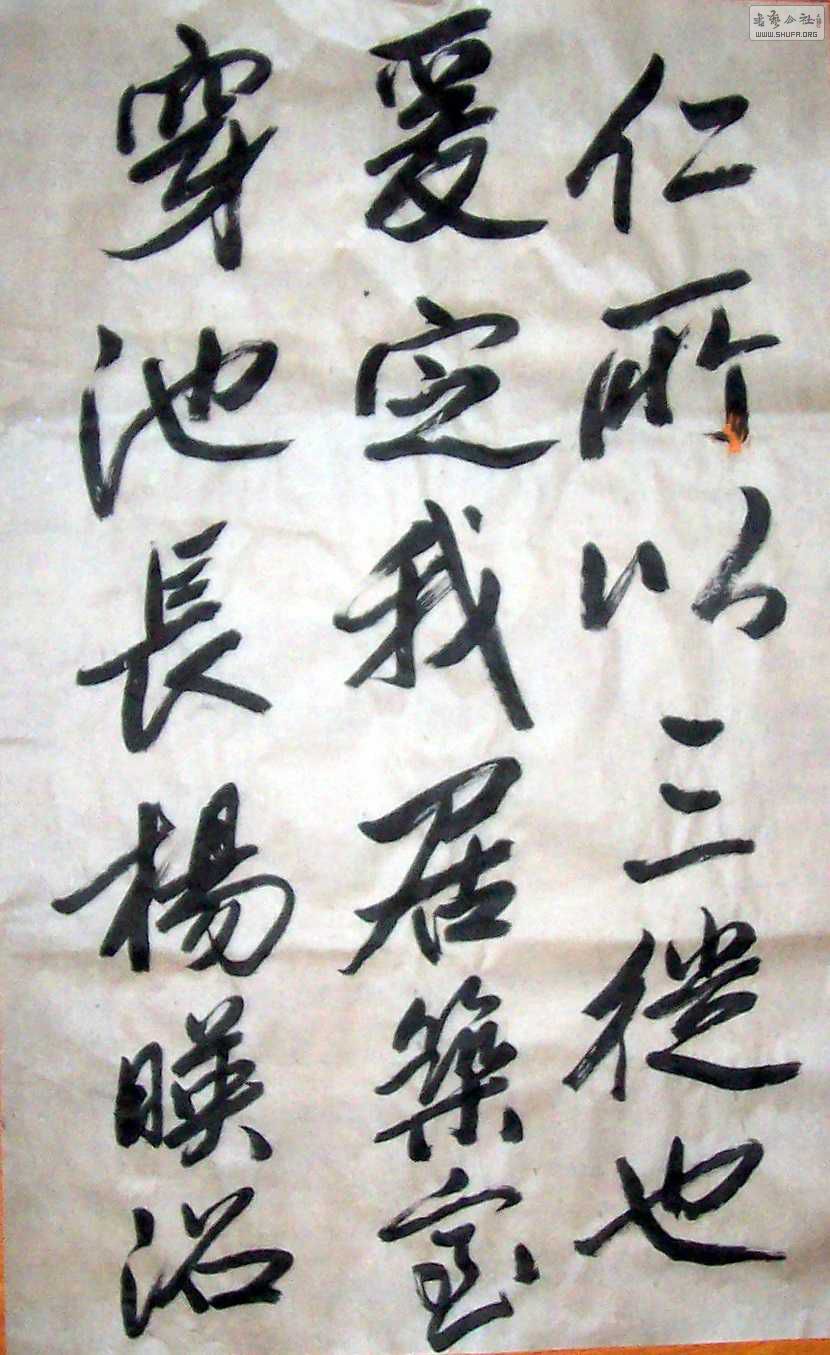 仁所以三徙也
爰定我居築室
穿池長楊暎沼
書法公社
WWW.SHUFA.ORG